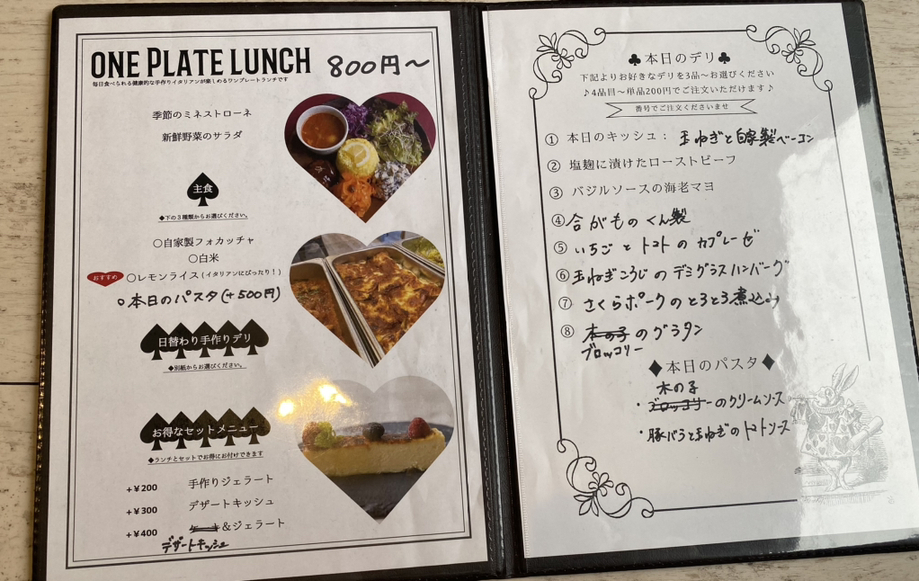 ONE PLATE LUNCH 800円〜
毎日食べられる健康的な手作りイタリアンが楽しめるワンプレートランチです
季節のミネストローネ
新鮮野菜のサラダ
主食
◆下の3種類からお選びください。
○自家製フォカッチャ
○白米
おすすめ ○レモンライス(イタリアンにぴったり!)
○本日のパスタ(+500円)
日替わり手作りデリ
◆別紙からお選びください。
お得なセットメニュー
◆ランチとセットでお得にお付けできます
+¥200 手作りジェラート
+¥300 デザートキッシュ
+¥400 ケーキ&ジェラート
デザートキッシュ
♣本日のデリ♣
下記よりお好きなデリを3品〜お選びください
♪4品目〜単品200円でご注文いただけます♪
番号でご注文くださいませ
① 本日のキッシュ: 玉ねぎと自家製ベーコン
② 塩麹に漬けたローストビーフ
③ バジルソースの海老マヨ
④ 合がもの くん製
⑤ いちごとトマトのカプレーゼ
⑥ 玉ねぎこうじのデミグラスハンバーグ
⑦ さくらポークのとろとろ煮込み
⑧ 木の子のグラタン
ブロッコリー
◆本日のパスタ◆
木の子
・ブロッコリーのクリームソース
・豚バラと玉ねぎのトマトソース